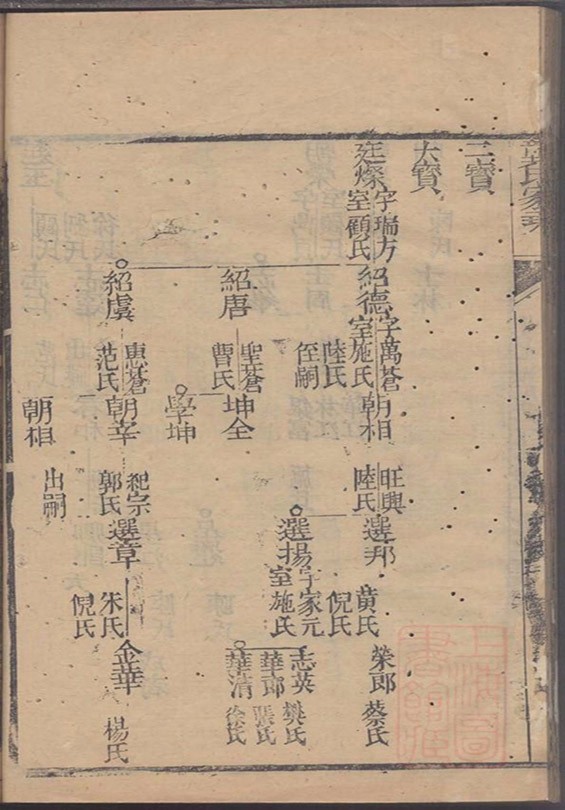 三寶
大寶
廷燦
字瑞方
室顧氏
紹德
字萬蒼
室施氏
陸氏
侄嗣
朝相
旺興
陸氏
選邦
黄氏
倪氏
榮郎
蔡氏
選揚
字家元
室施氏
志英
樊氏
華郎
張氏
華清
徐氏
紹唐
聖蒼
曹氏
坤全
學坤
紹虞
惠蒼
范氏
朝宰
紀宗
郭氏
選章
朱氏
倪氏
金華
楊氏
朝相
出嗣